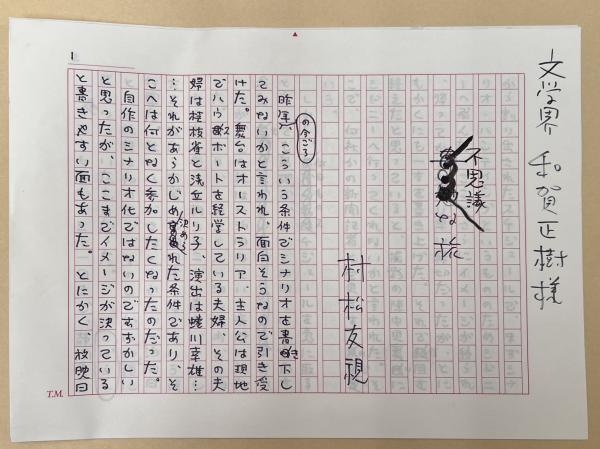 文学界 和賀正樹様
不思議
な旅
村松友視
の今ごろ
昨年、こういう条件でシナリオを書き下し
てみないかと言われ、面白そうなので引き受
けた。舞台はオーストラリア、主人公は現地
でハウスボートを経営している夫婦、その夫
婦は桂枝雀と浅丘ルリ子、演出は蜷川幸雄…
…それがあらかじめ決められた条件であり、そ
こへは何となく参加したくなったのだった。
自作のシナリオ化ではないのでむずかしい
と思ったが、ここまでイメージが決っている
と書きやすい面もあった。とにかく、放映日
1
T.M.